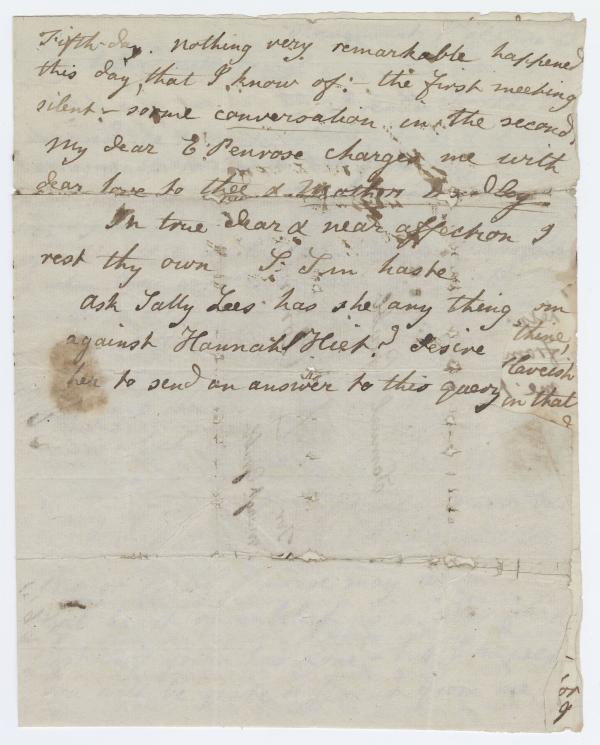 Fifth-day. nothing very remarkable happened
this day, that I know of:- the first meeting
silent - some conversation in the second,
My dear E Penrose charges me with
dear love to thee & Mother
In true dear & near affection I
rest thy own S: T in haste
ask Sally Lees has she any thing
against Hannah ? desire
her to send an answer to this query
on
thine,
in that